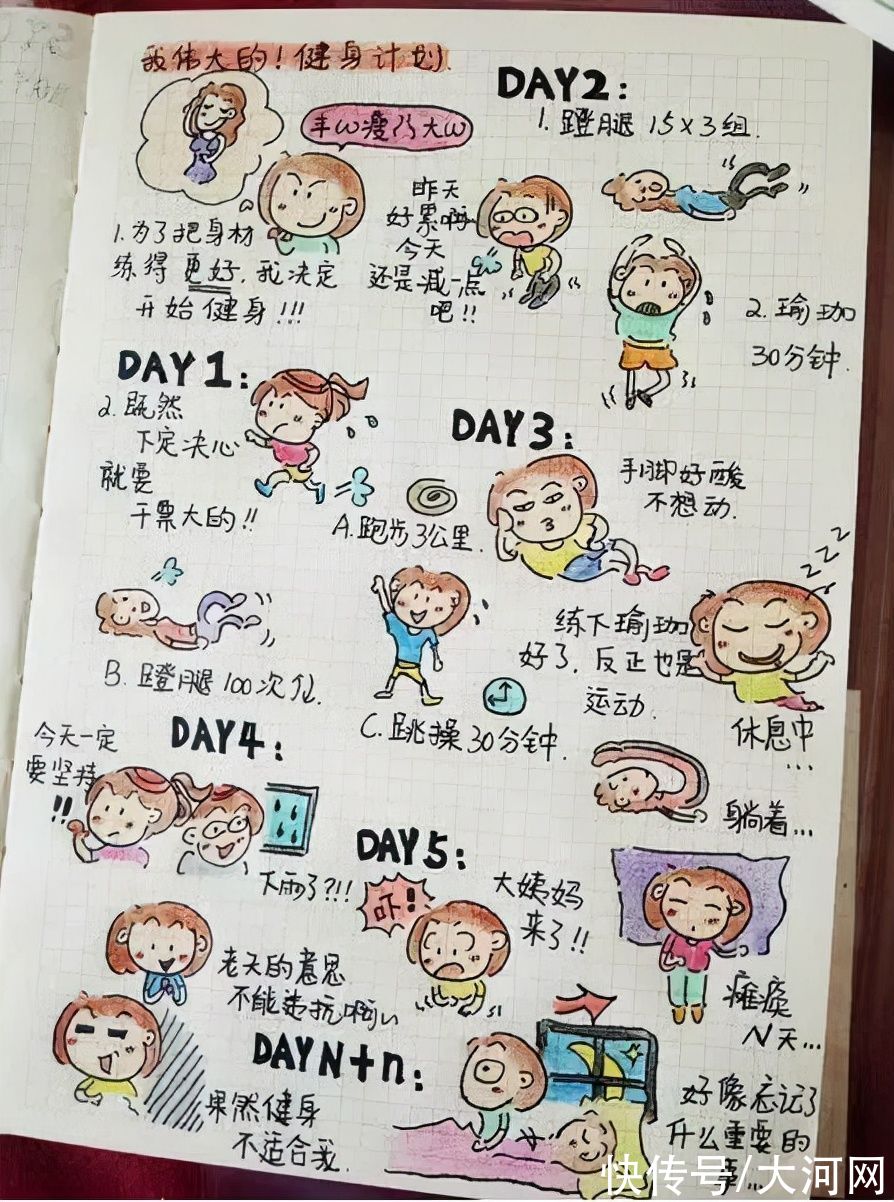 我伟大的！健身计划
丰ω瘦乃大ω
1.为了把身材
练得更好，我决定
开始健身!!!
DAY1:
2.既然
下定决心
就要
干票大的!!
A.跑步3公里.
B.蹬腿100次
C.跳操30分钟.
DAY2:
1.蹬腿15×3组.
昨天
好累啊
今天
还是减一点
吧!!
2.瑜珈
30分钟.
DAY3:
手脚好酸
不想动.
练下瑜珈
好了，反正也是
运动.
zzz
休息中
...
躺着...
DAY4:
今天一定
要坚持
!!
下雨了?!!
老天的意思
不能违抗啊
DAY5:
大姨妈
来了!!
瘫痪
N天...
DAYN+n:
果然健身
不适合我.
好像忘记了
什么重要的
事...
快传号/大河网